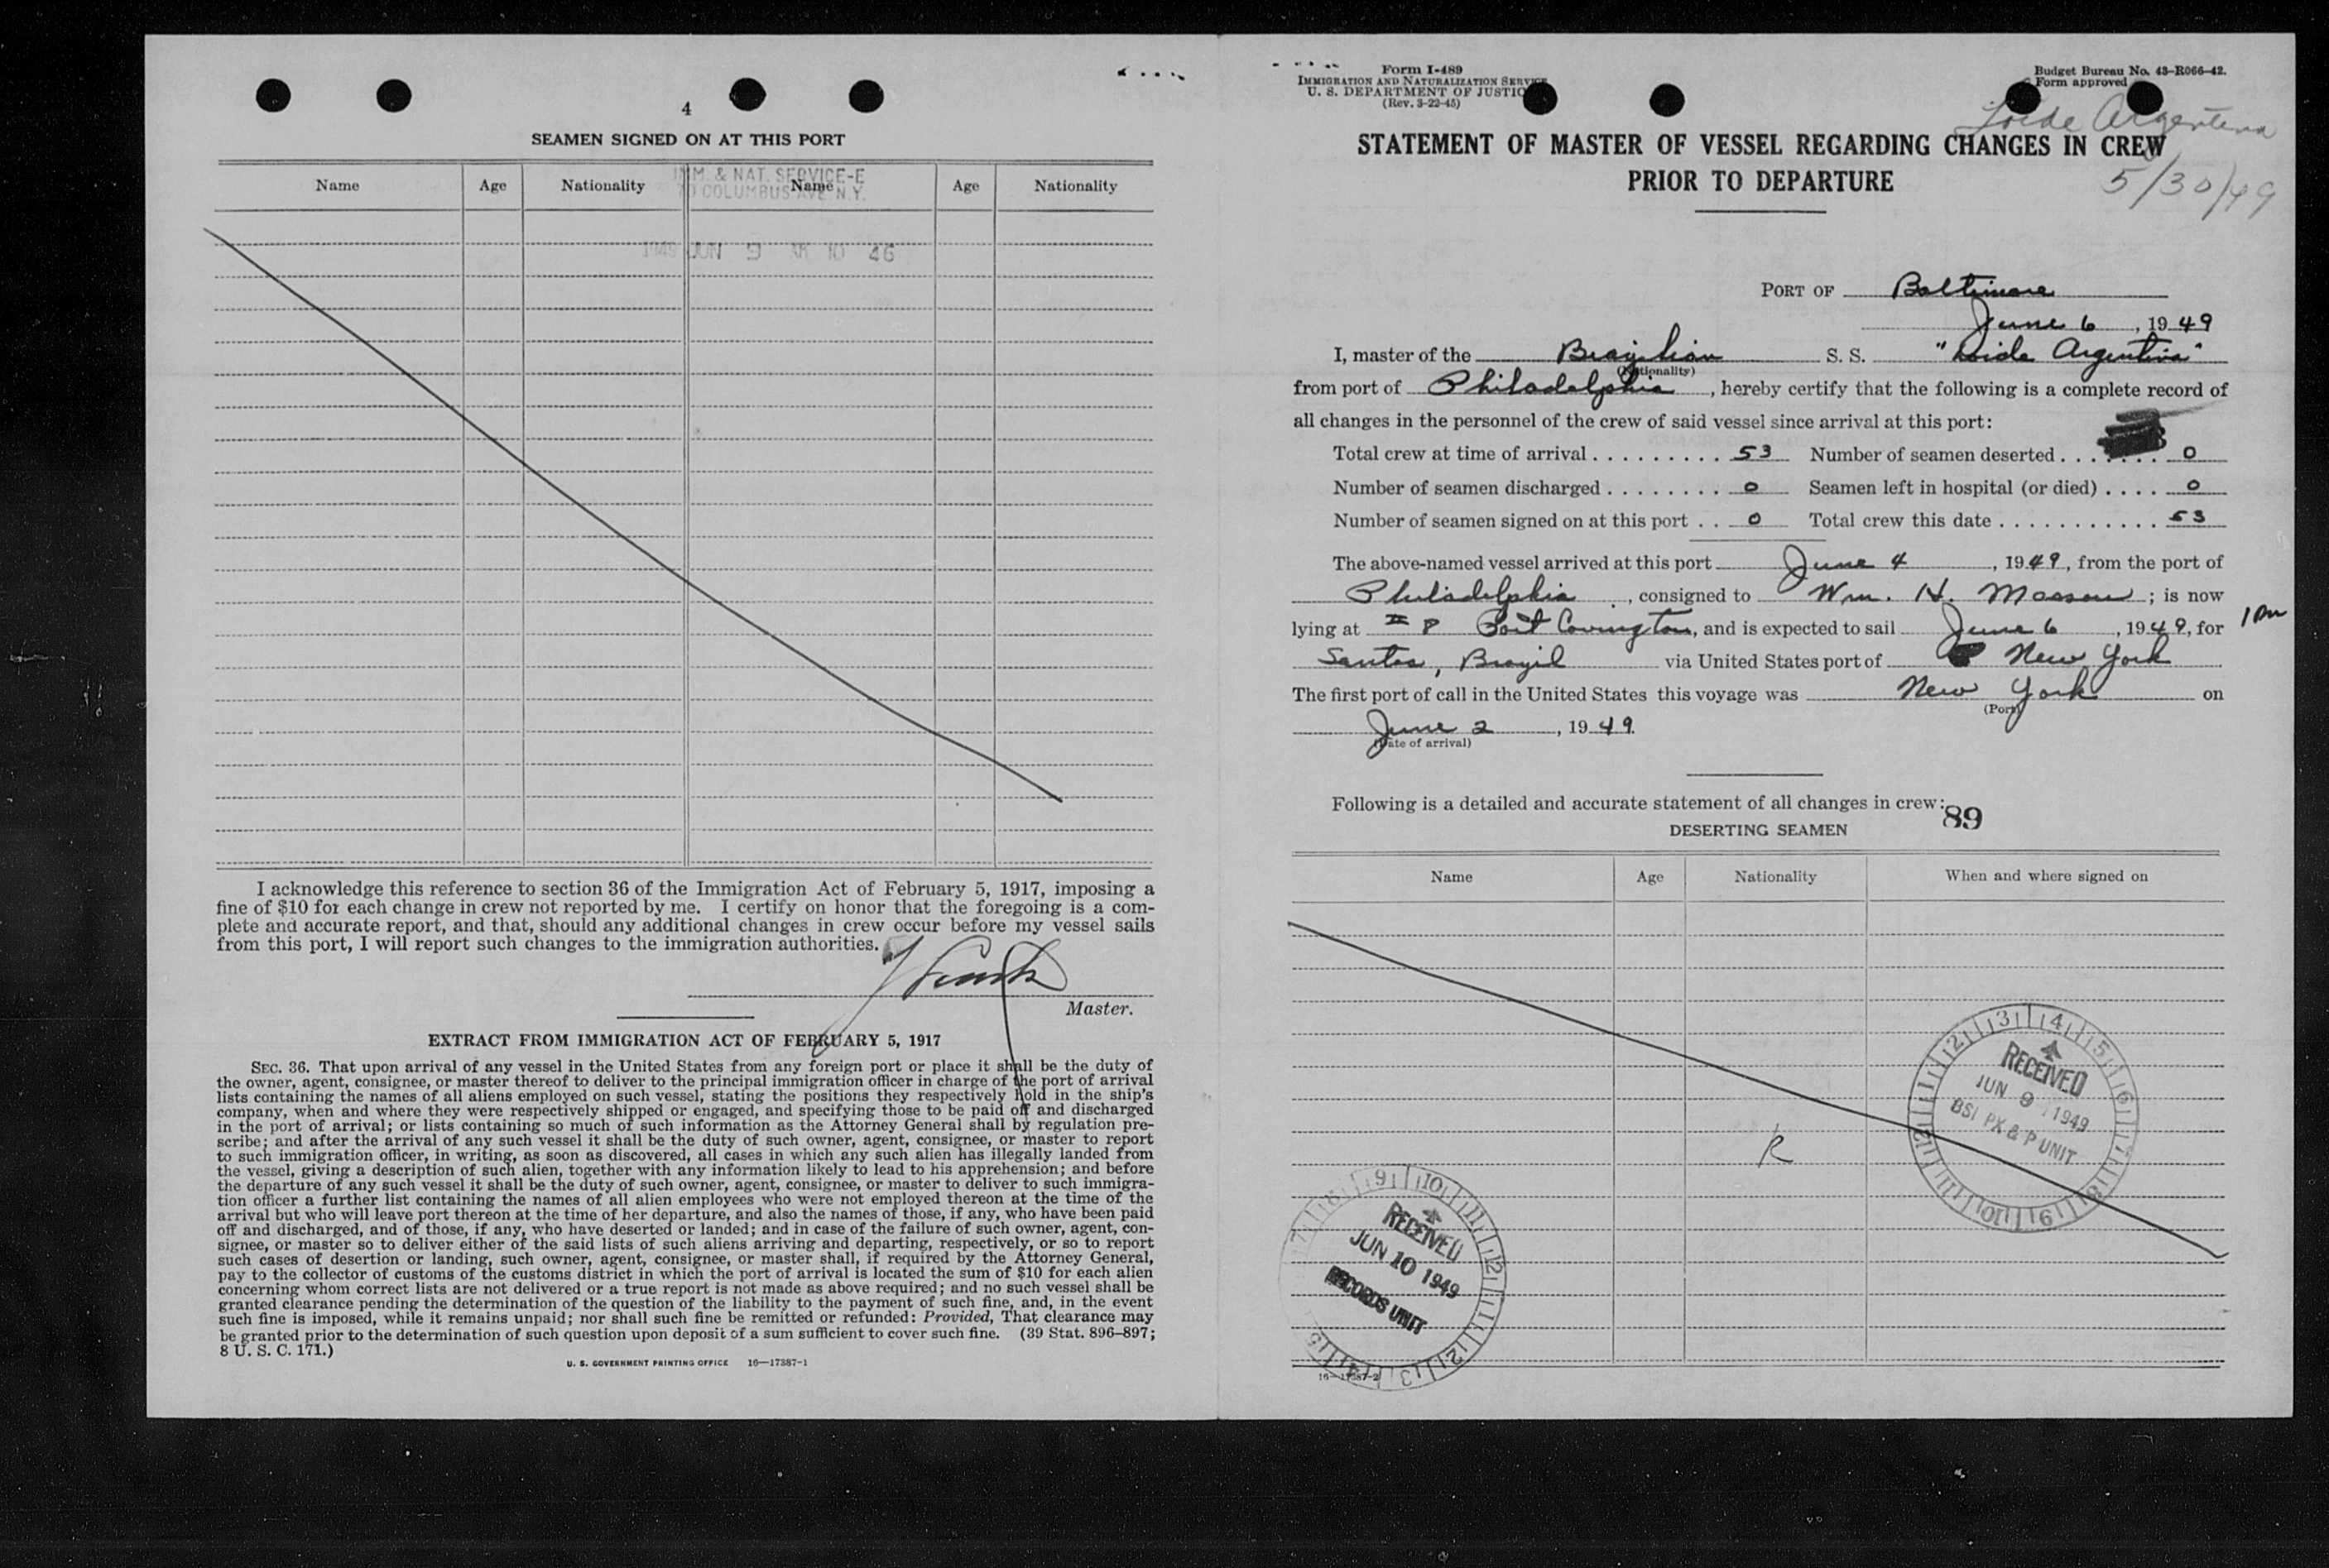 4
SEAMEN SIGNED ON AT THIS PORT
Name Age Nationality Name Age Nationality
IMM. & NAT. SERVICE-E
70 COLUMBUS AVE. N.Y.
1949 JUN 9 AM 10 46
I acknowledge this reference to section 36 of the Immigration Act of February 5, 1917, imposing a
fine of $10 for each change in crew not reported by me. I certify on honor that the foregoing is a com-
plete and accurate report, and that, should any additional changes in crew occur before my vessel sails
from this port, I will report such changes to the immigration authorities.
Master.
EXTRACT FROM IMMIGRATION ACT OF FEBRUARY 5, 1917
SEC. 36. That upon arrival of any vessel in the United States from any foreign port or place it shall be the duty of
the owner, agent, consignee, or master thereof to deliver to the principal immigration officer in charge of the port of arrival
lists containing the names of all aliens employed on such vessel, stating the positions they respectively hold in the ship's
company, when and where they were respectively shipped or engaged, and specifying those to be paid off and discharged
in the port of arrival; or lists containing so much of such information as the Attorney General shall by regulation pre-
scribe; and after the arrival of any such vessel it shall be the duty of such owner, agent, consignee, or master to report
to such immigration officer, in writing, as soon as discovered, all cases in which any such alien has illegally landed from
the vessel, giving a description of such alien, together with any information likely to lead to his apprehension; and before
the departure of any such vessel it shall be the duty of such owner, agent, consignee, or master to deliver to such immigra-
tion officer a further list containing the names of all alien employees who were not employed thereon at the time of the
arrival but who will leave port thereon at the time of her departure, and also the names of those, if any, who have been paid
off and discharged, and of those, if any, who have deserted or landed; and in case of the failure of such owner, agent, con-
signee, or master so to deliver either of the said lists of such aliens arriving and departing, respectively, or so to report
such cases of desertion or landing, such owner, agent, consignee, or master shall, if required by the Attorney General,
pay to the collector of customs of the customs district in which the port of arrival is located the sum of $10 for each alien
concerning whom correct lists are not delivered or a true report is not made as above required; and no such vessel shall be
granted clearance pending the determination of the question of the liability to the payment of such fine, and, in the event
such fine is imposed, while it remains unpaid; nor shall such fine be remitted or refunded: Provided, That clearance may
be granted prior to the determination of such question upon deposit of a sum sufficient to cover such fine. (39 Stat. 896–897;
8 U. S. C. 171.)
U. S. GOVERNMENT PRINTING OFFICE 16—17387-1
Form I-489
IMMIGRATION AND NATURALIZATION SERVICE
U. S. DEPARTMENT OF JUSTICE
(Rev. 3-22-45)
Budget Bureau No. 43–R066–42.
Form approved
Loide Argentina
5/30/49
STATEMENT OF MASTER OF VESSEL REGARDING CHANGES IN CREW
PRIOR TO DEPARTURE
PORT OF Baltimore
June 6, 1949
I, master of the Brazilian S. S. "Loide Argentina"
(Nationality)
from port of Philadelphia, hereby certify that the following is a complete record of
all changes in the personnel of the crew of said vessel since arrival at this port:
Total crew at time of arrival . . . . . . . . . 53 Number of seamen deserted . . . . . . . 0
Number of seamen discharged . . . . . . . . 0 Seamen left in hospital (or died) . . . . 0
Number of seamen signed on at this port . . 0 Total crew this date . . . . . . . . . . . . 53
The above-named vessel arrived at this port June 4, 1949, from the port of
Philadelphia, consigned to Wm. H. Masson; is now
lying at # 8 Port Covington, and is expected to sail June 6, 1949, for 1 PM
Santos, Brazil via United States port of New York
The first port of call in the United States this voyage was New York on
(Port)
June 2, 1949.
(Date of arrival)
Following is a detailed and accurate statement of all changes in crew:
89
DESERTING SEAMEN
Name Age Nationality When and where signed on
RECEIVED
JUN 9 1949
BSI PX & P UNIT
R
RECEIVED
JUN 10 1949
RECORDS UNIT
16—17387-2